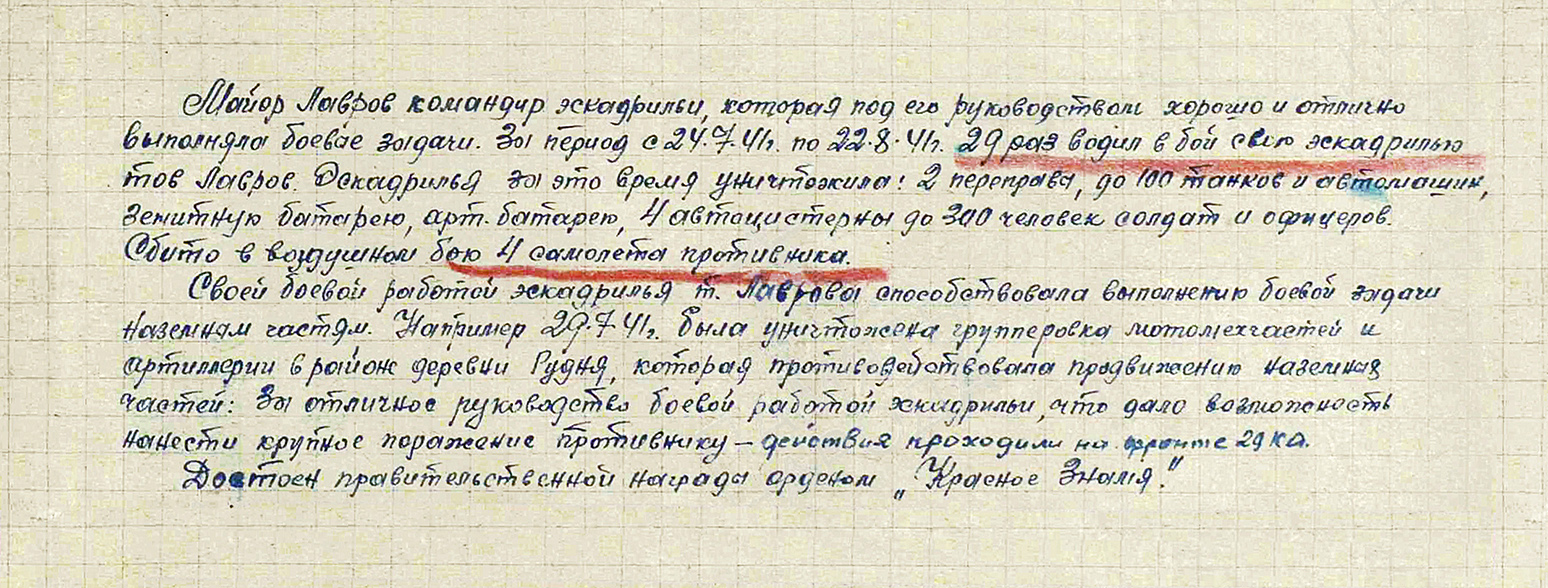 Майор Лавров командир эскадрильи, которая под его руководством хорошо и отлично
выполняла боевые задачи. За период с 24.7.41г. по 22.8.41г. 29 раз водил в бой свою эскадрилью
тов Лавров. Эскадрилья за это время уничтожила: 2 переправы, до 100 танков и автомашин,
зенитную батарею, арт. батарею, 4 автоцистерны до 300 человек солдат и офицеров.
Сбито в воздушном бою 4 самолета противника.
Своей боевой работой эскадрилья т. Лаврова способствовала выполнению боевой задачи
наземным частям. Например 29.7.41г. была уничтожена группировка мотомехчастей и
артиллерии в районе деревни Рудня, которая противодействовала продвижению наземных
частей: За отличное руководство боевой работой эскадрильи, что дало возможность
нанести крупное поражение противнику – действия проходили на фронте 29 ка.
Достоен правительственной награды орденом „Красное Знамя."